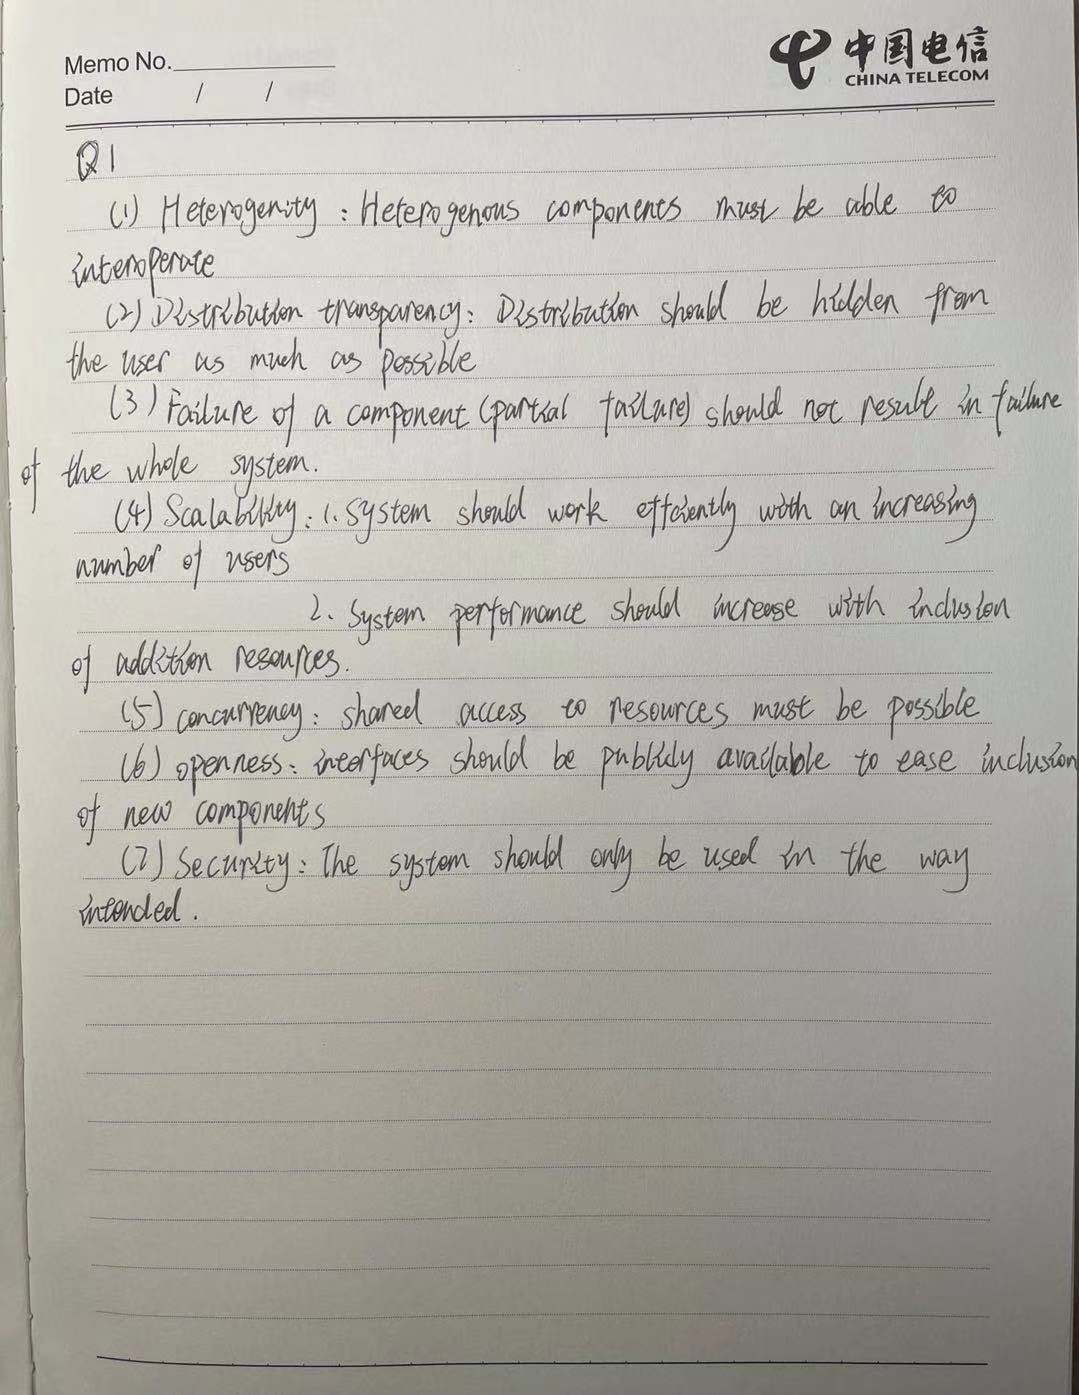 Memo No.
中国电信
CHINA TELECOM
Date / /
Q1
(1) Heterogenity : Heterogenous components must be able to
interoperate
(2) Distribution transparency: Distribution should be hidden from
the user as much as possible
(3) Failure of a component (partial failure) should not result in failure
of the whole system.
(4) Scalability: 1. System should work efficiently with an increasing
number of users
2. System performance should increase with inclusion
of addition resources.
(5) concurrency: shared access to resources must be possible
(6) openness: interfaces should be publicly available to ease inclusion
of new components
(7) Security: The system should only be used in the way
intended.